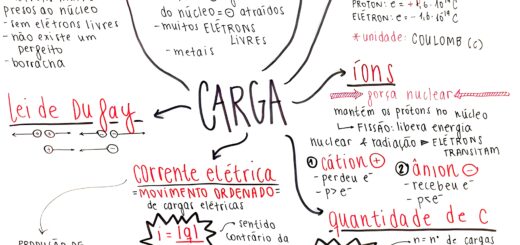 presos ao núcleo
- sem elétrons livres
- não existe um
perfeito
- borracha
do núcleo = ⊖ atraídos
- muitos ELÉTRONS
LIVRES
- metais
PRÓTON: e = + 1,6 · 10⁻¹⁹ C
ELÉTRON: e = - 1,6 · 10⁻¹⁹ C
* unidade: COULOMB (C)
CARGA
lei de Du fay
íons
força nuclear
mantém os prótons no núcleo
↳ FISSÃO: libera energia
nuclear & radiação ► ELÉTRONS
TRANSITAM
① cátion ⊕
- perdeu e⁻
- p>e⁻
② ânion ⊖
- recebeu e⁻
- p<e⁻
corrente elétrica
= MOVIMENTO ORDENADO =
de cargas elétricas
i = |q|
sentido
contrário da
quantidade de C
n = nº de cargas